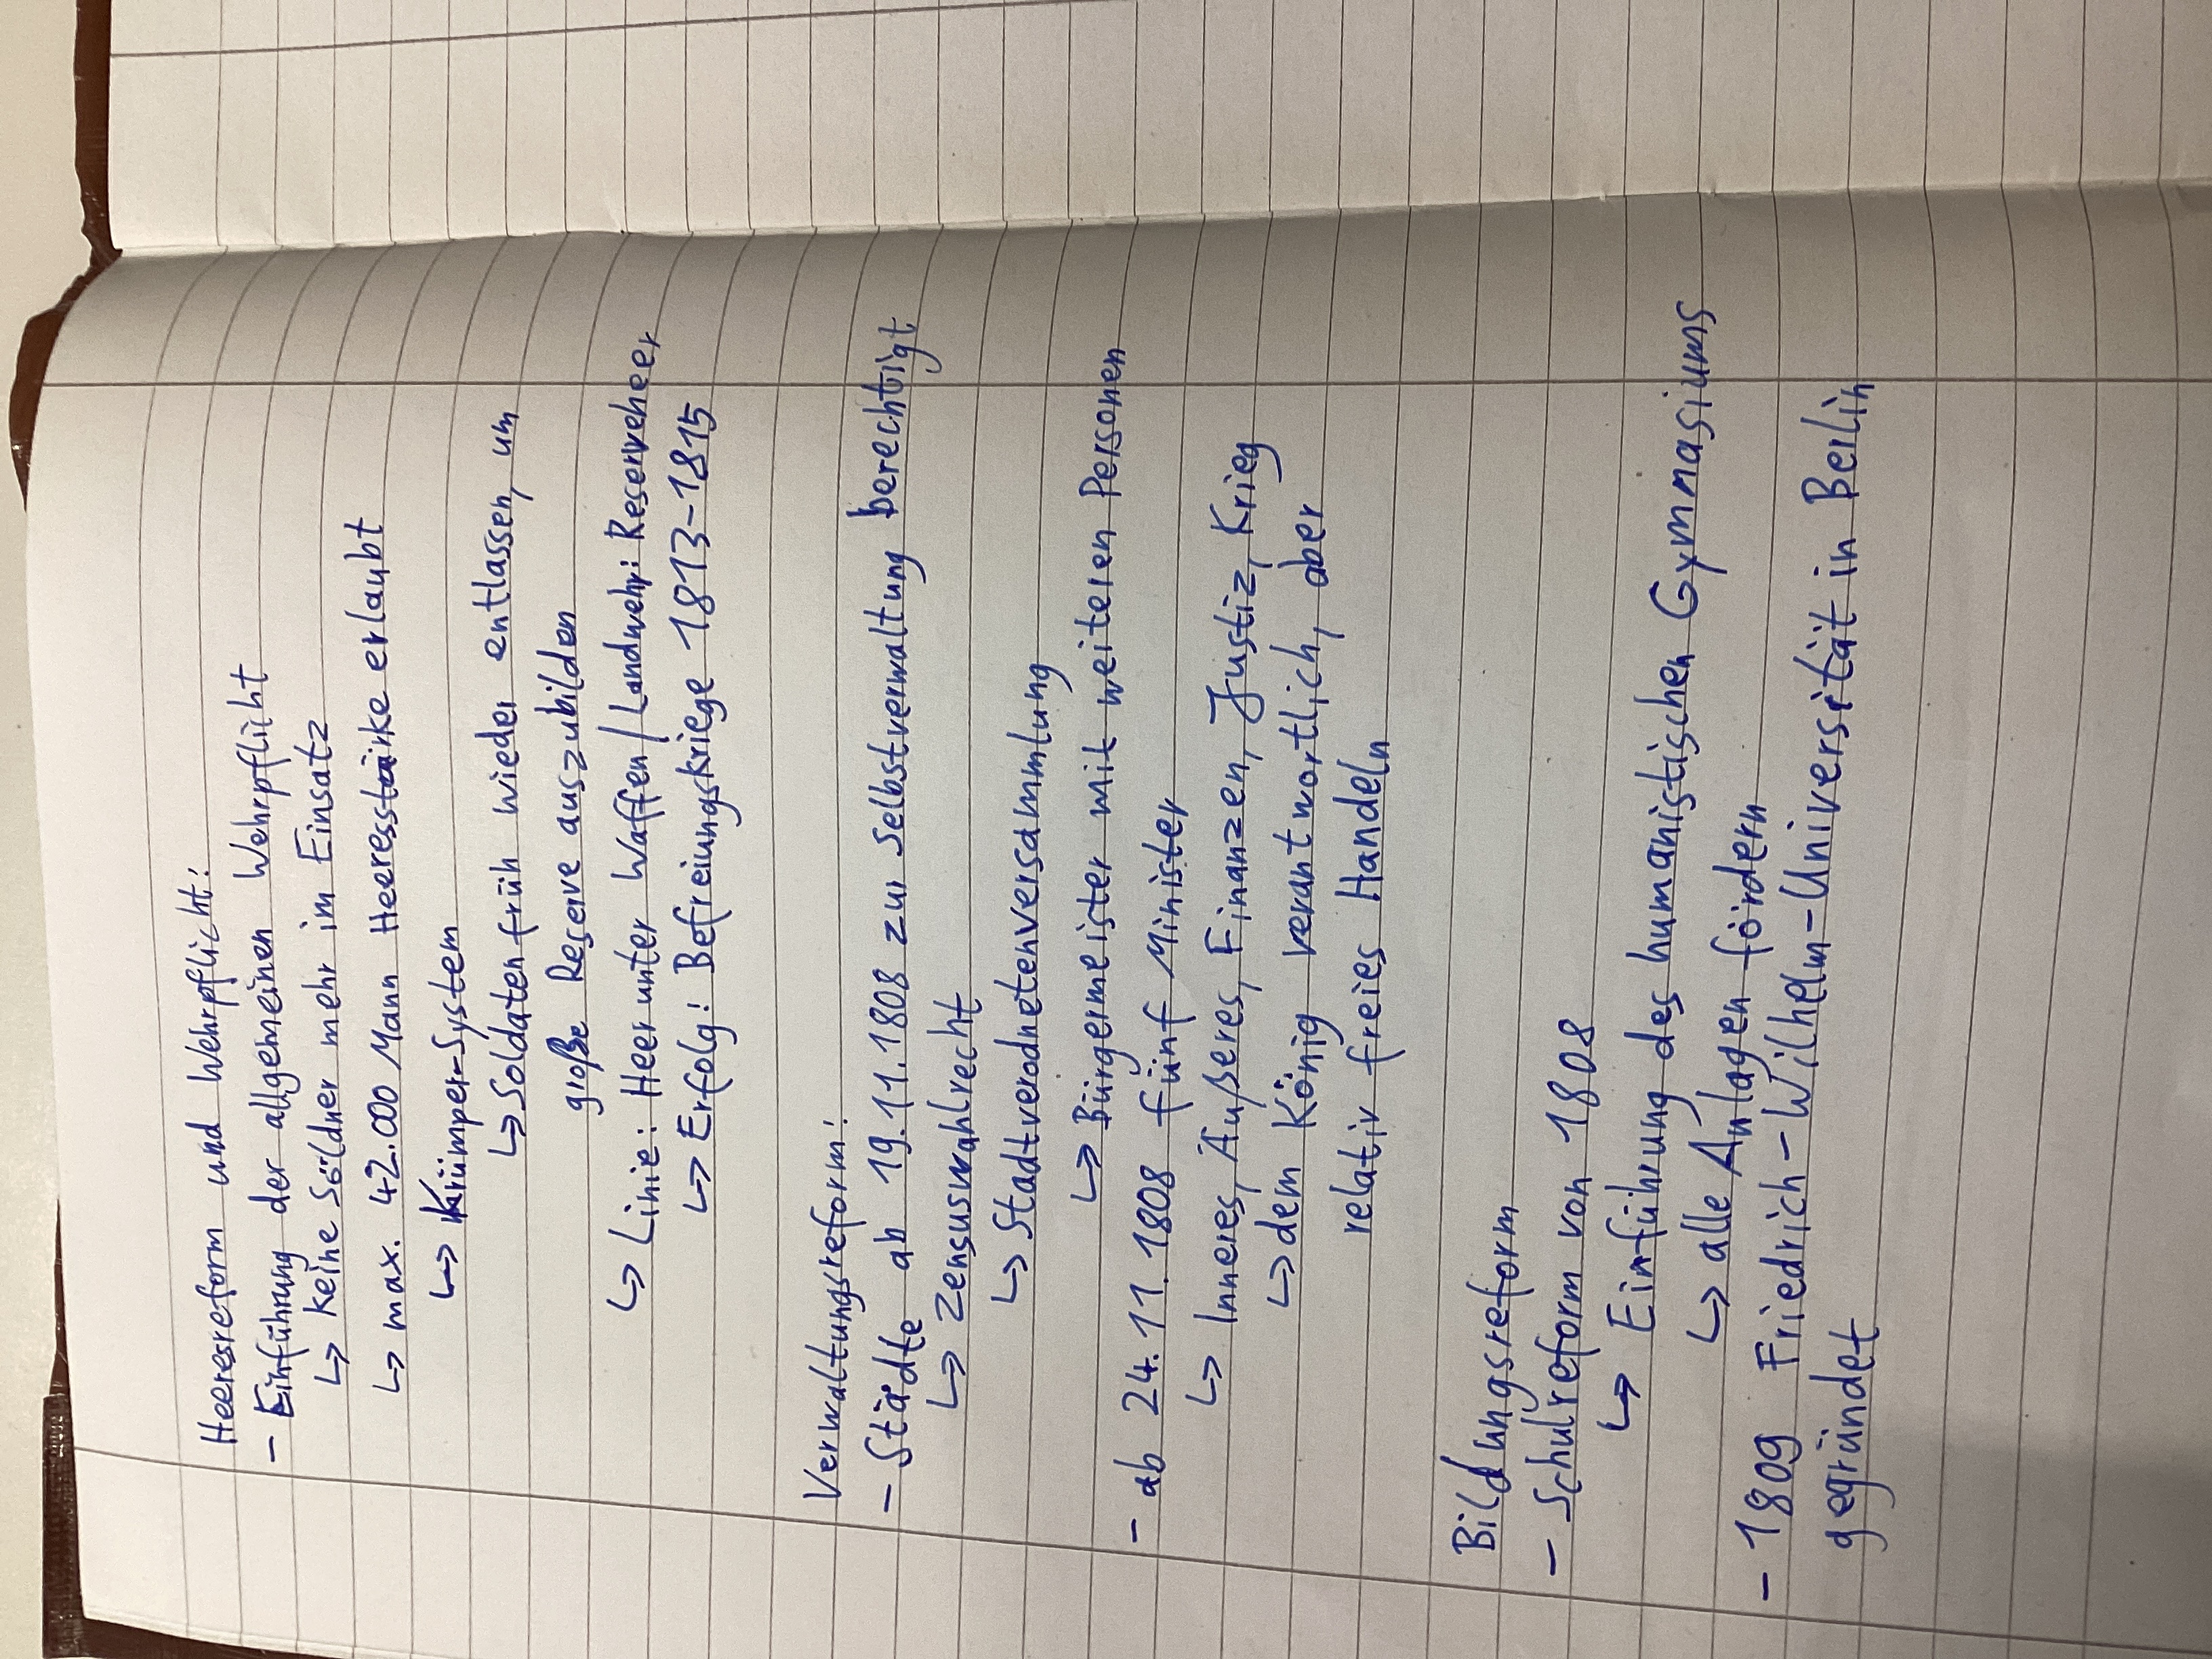 Heeresreform und Wehrpflicht:
- Einführung der allgemeinen Wehrpflicht
↳ keine Söldner mehr im Einsatz
↳ max. 42.000 Mann Heeresstärke erlaubt
↳ Krümper-System
↳ Soldaten früh wieder entlassen, um
große Reserve auszubilden
↳ Linie: Heer unter Waffen / Landwehr: Reserveheer
↳ Erfolg: Befreiungskriege 1813-1815
Verwaltungsreform:
- Städte ab 19.11.1808 zur Selbstverwaltung berechtigt
↳ Zensuswahlrecht
↳ Stadtverodnetenversammlung
↳ Bürgermeister mit weiteren Personen
- ab 24.11.1808 fünf Minister
↳ Inneres, Äußeres, Finanzen, Justiz, Krieg
↳ dem König verantwortlich, aber
relativ freies Handeln
Bildungsreform
- Schulreform von 1808
↳ Einführung des humanistischen Gymnasiums
↳ alle Anlagen fördern
- 1809 Friedrich-Wilhelm-Universität in Berlin
gegründet